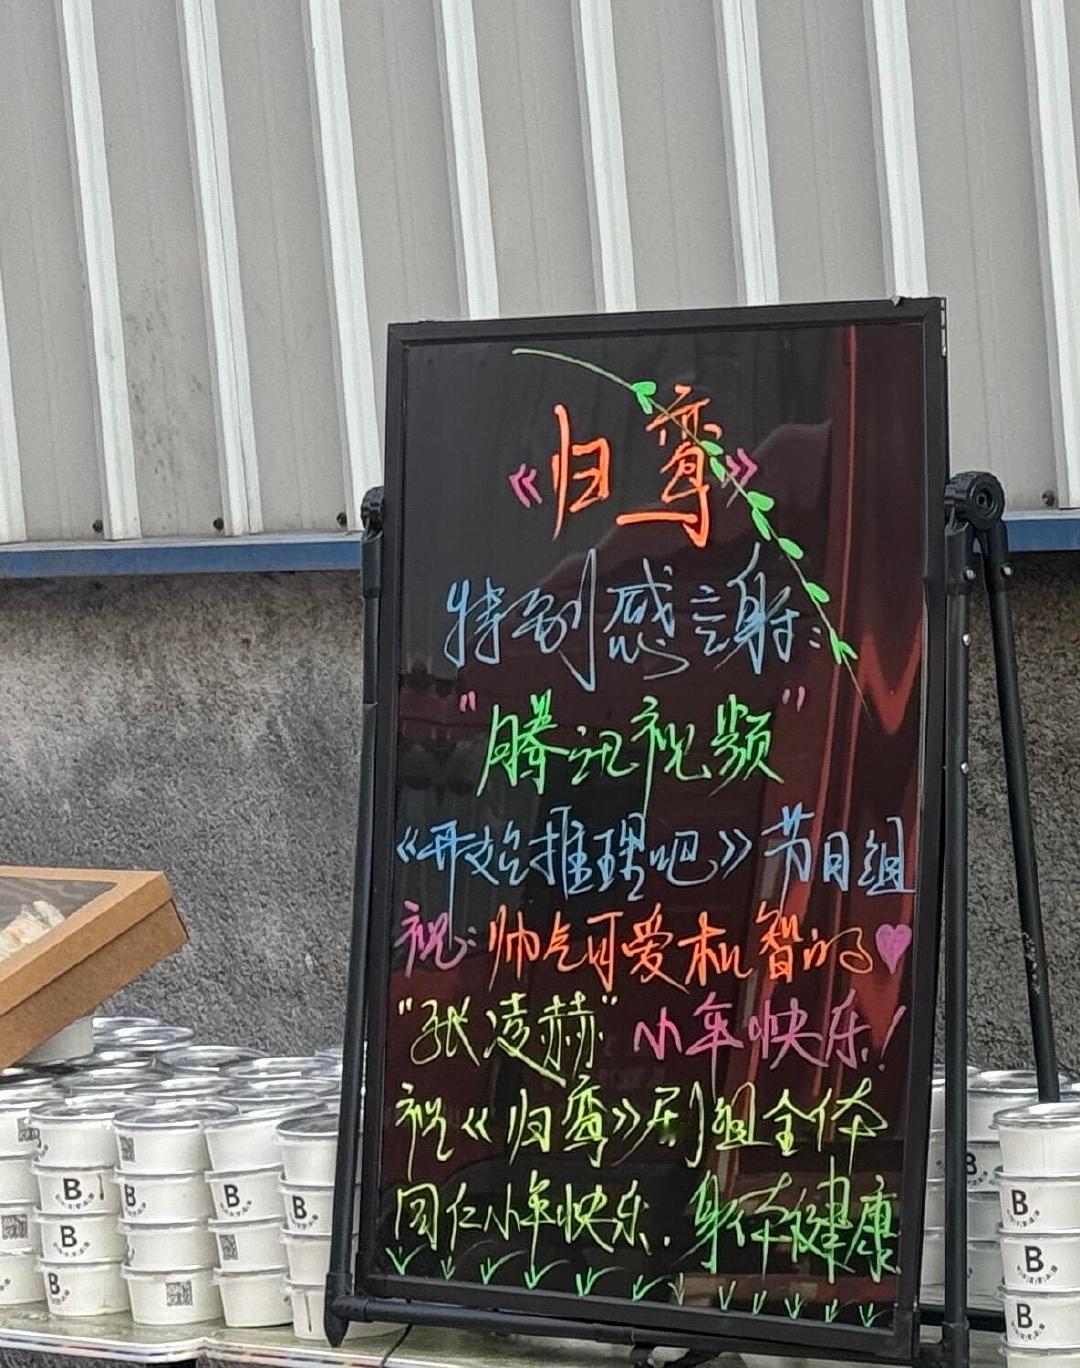 《归鸾》
特别感谢：
"腾讯视频"
《开始推理吧》节目组
祝：帅气可爱机智的
"张凌赫"小年快乐！
祝《归鸾》剧组全体
同仁小年快乐．身体健康
B
B
B
B
B
B
B
B
B
B
B